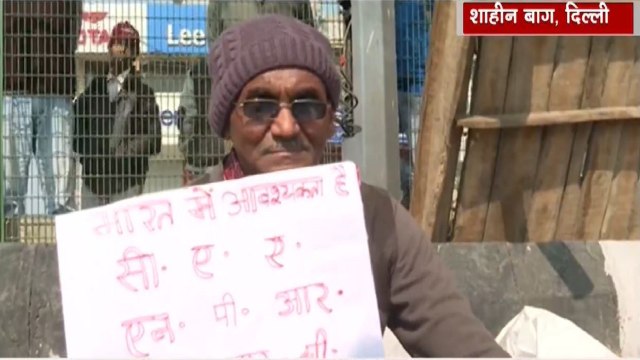 शाहीन बाग, दिल्ली
OTA
Lee
Lee
भारत में आवश्यकता है
सी. ए. ए.
एन. पी. आर.